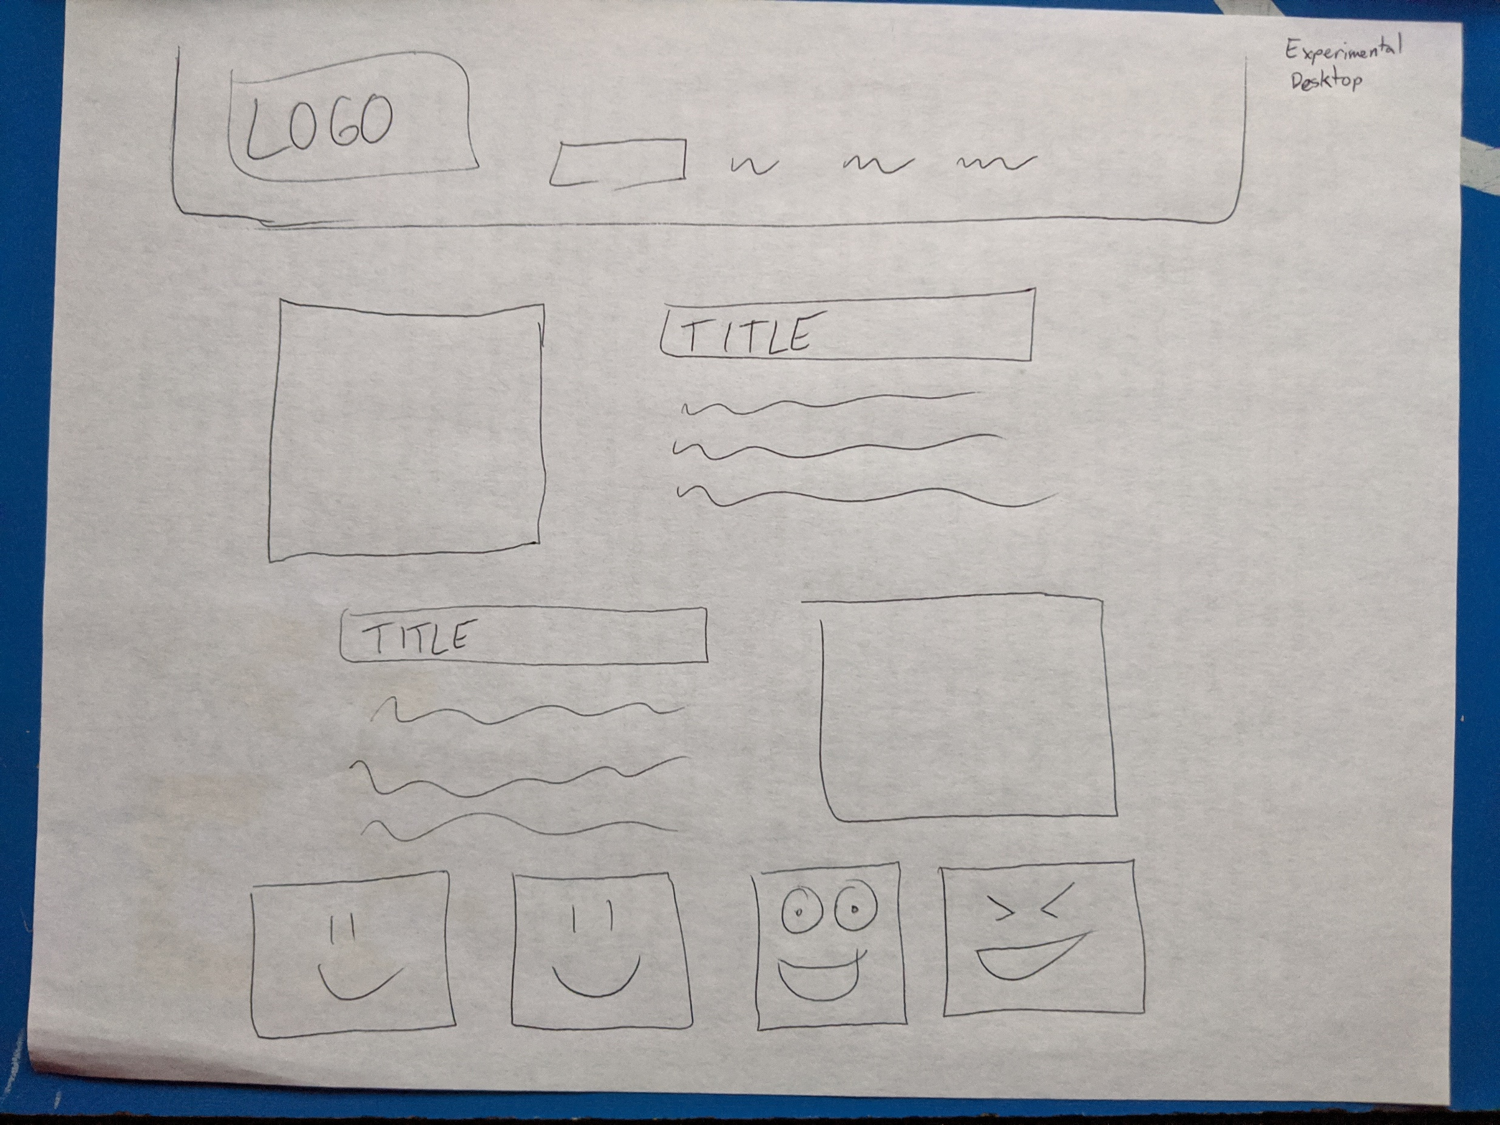 Experimental
Desktop
LOGO
TITLE
TITLE